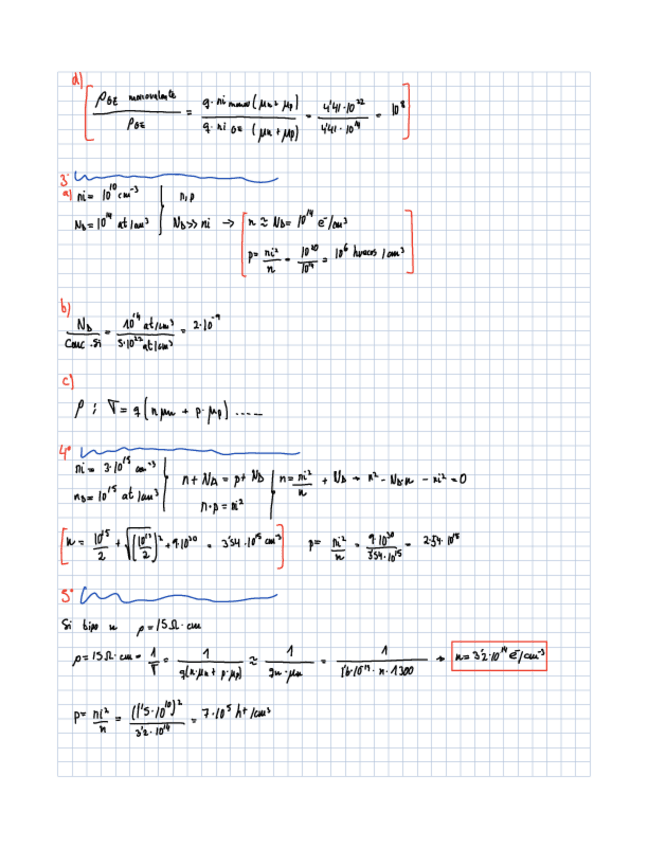 d)
ρGE monovalente / ρGE = q·ni mono (μn + μp) / q·ni GE (μn + μp) = 4'41·10²² / 4'41·10¹⁴ = 10⁸
3º
a) ni = 10¹⁰ cm⁻³ n, p
ND = 10¹⁴ at/cm³ ND >> ni → n ≈ ND = 10¹⁴ e⁻/cm³
p = ni²/n = 10²⁰/10¹⁴ = 10⁶ huecos/cm³
b)
ND / Conc. Si = 10¹⁴ at/cm³ / 5·10²² at/cm³ = 2·10⁻⁹
c)
ρ ; σ = q(n μn + p·μp) .....
4º
ni = 3·10¹⁵ cm⁻³
nD = 10¹⁵ at/cm³ n + NA = p + ND n = ni²/n + ND → n² - ND·n - ni² = 0
n·p = ni²
n = 10¹⁵/2 + √((10¹⁵/2)² + 9·10³⁰ = 3'54·10¹⁵ cm⁻³ p = ni²/n = 9·10³⁰/3'54·10¹⁵ = 2'54·10¹⁵
5º
Si tipo n ρ = 15 Ω·cm
ρ = 15 Ω·cm = 1/σ = 1/q(n·μn + p·μp) ≈ 1/qn·μn = 1/1'6·10⁻¹⁹·n·1300 → n = 3'2·10¹⁴ e⁻/cm⁻³
p = ni²/n = (1'5·10¹⁰)²/3'2·10¹⁴ = 7·10⁵ h+/cm³